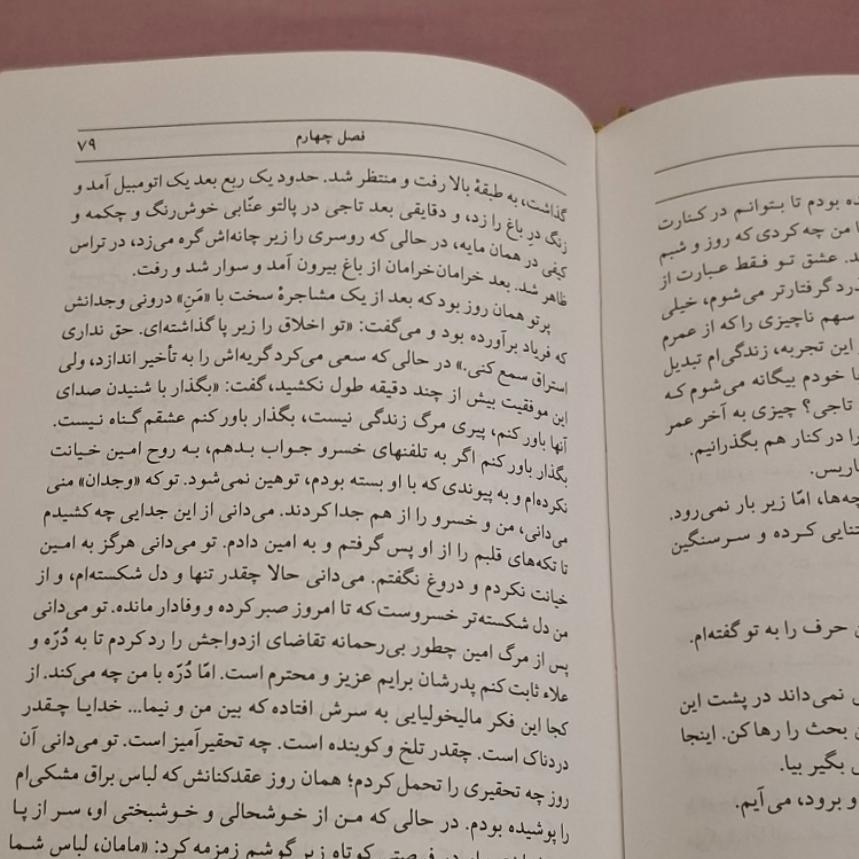 فصل چهارم
۷۹
گذاشت، به طبقهٔ بالا رفت و منتظر شد. حدود یک ربع بعد یک اتومبیل آمد و
زنگ درِ باغ را زد، و دقایقی بعد تاجی در پالتو عنّابی خوش‌رنگ و چکمه و
کیفی در همان مایه، در حالی که روسری را زیر چانه‌اش گره می‌زد، در تراس
ظاهر شد. بعد خرامان‌خرامان از باغ بیرون آمد و سوار شد و رفت.
پرتو همان روز بود که بعد از یک مشاجرهٔ سخت با «مَنِ» درونی وجدانش
که فریاد برآورده بود و می‌گفت: «تو اخلاق را زیر پا گذاشته‌ای. حق نداری
استراق سمع کنی.» در حالی که سعی می‌کرد گریه‌اش را به تأخیر اندازد، ولی
این موفقیت بیش از چند دقیقه طول نکشید، گفت: «بگذار با شنیدن صدای
آنها باور کنم، پیری مرگ زندگی نیست، بگذار باور کنم عشقم گناه نیست.
بگذار باور کنم اگر به تلفنهای خسرو جواب بدهم، به روح امین خیانت
نکرده‌ام و به پیوندی که با او بسته بودم، توهین نمی‌شود. تو که «وجدان» منی
می‌دانی، من و خسرو را از هم جدا کردند. می‌دانی از این جدایی چه کشیدم
تا تکه‌های قلبم را از او پس گرفتم و به امین دادم. تو می‌دانی هرگز به امین
خیانت نکردم و دروغ نگفتم. می‌دانی حالا چقدر تنها و دل شکسته‌ام، و از
من دل شکسته‌تر خسروست که تا امروز صبر کرده و وفادار مانده. تو می‌دانی
پس از مرگ امین چطور بی‌رحمانه تقاضای ازدواجش را رد کردم تا به دُرّه و
علاء ثابت کنم پدرشان برایم عزیز و محترم است. امّا دُرّه با من چه می‌کند. از
کجا این فکر مالیخولیایی به سرش افتاده که بین من و نیما... خدایا چقدر
دردناک است. چقدر تلخ و کوبنده است. چه تحقیرآمیز است. تو می‌دانی آن
روز چه تحقیری را تحمل کردم؛ همان روز عقدکنانش که لباس براق مشکی‌ام
را پوشیده بودم. در حالی که من از خوشحالی و خوشبختی او، سر از پا
در فرصتی کوتاه زیر گوشم زمزمه کرد: «مامان، لباس شما
ده بودم تا بتوانم در کنارت
ا من چه کردی که روز و شبم
د. عشق تو فقط عبارت از
درد گرفتارتر می‌شوم، خیلی
سهم ناچیزی را که از عمرم
این تجربه، زندگی‌ام تبدیل
ا خودم بیگانه می‌شوم که
تاجی؟ چیزی به آخر عمر
را در کنار هم بگذرانیم.
اریس.
چه‌ها، امّا زیر بار نمی‌رود.
تنایی کرده و سرسنگین
حرف را به تو گفته‌ام.
نمی‌داند در پشت این
بحث را رها کن. اینجا
بگیر بیا.
و برود، می‌آیم.